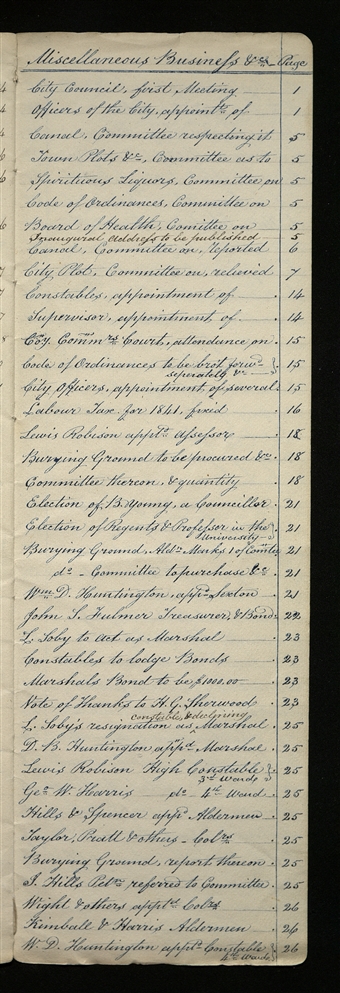 Miscellaneous Business &c. - Page
City Council, first Meeting 1
Officers of the City, appointt. of 1
Canal, Committee respecting it 5
Town Plots &c, Committee as to 5
Spirituous Liquors, Committee on 5
Code of Ordinances, Committee on 5
Board of Health, Comittee on 5
Inaugural Address to be published 5
Canal, Committee on, reported 6
City Plot, Committee on, relieved 7
Constables, appointment of 14
Supervisor, appointment of 14
Coy. Commrs. Court, attendance on 15
Code of Ordinances to be brot. forwd. seperately &c 15
City Officers, appointment of several 15
Labour Tax for 1841, fixed 16
Lewis Robison apptd. Assessor 18
Burying Ground to be procured &c. 18
Committee thereon, & quantity 18
Election of B. Young, a Councillor 21
Election of Regents & Professor in the University 21
Burying Ground, Aldn. Marks 1 of Comtee 21
do - Committee to purchase &c 21
Wm. D. Huntington, appd. Sexton 21
John S. Fulmer Treasurer, & Bond 22
L. Soby to act as Marshal 23
Constables to lodge Bonds 23
Marshals Bond to be $1000.00 23
Vote of Thanks to H. G. Sherwood 23
constables declining
L. Soby's resignation as Marshal 25
D. B. Huntington appd. Marshal 25
Lewis Robison High Constable 3rd. Ward 25
Geo. W. Harris do 4th Ward 25
Hills & Spencer appd. Aldermen 25
Taylor, Pratt & others - Colrs 25
Burying Ground, report thereon 25
J. Hills Petn. referred to Committee 25
Wight & others apptd. Colrs 26
Kimball & Harris Aldermen 26
W. D. Huntington apptd. Constable 4th Ward 26